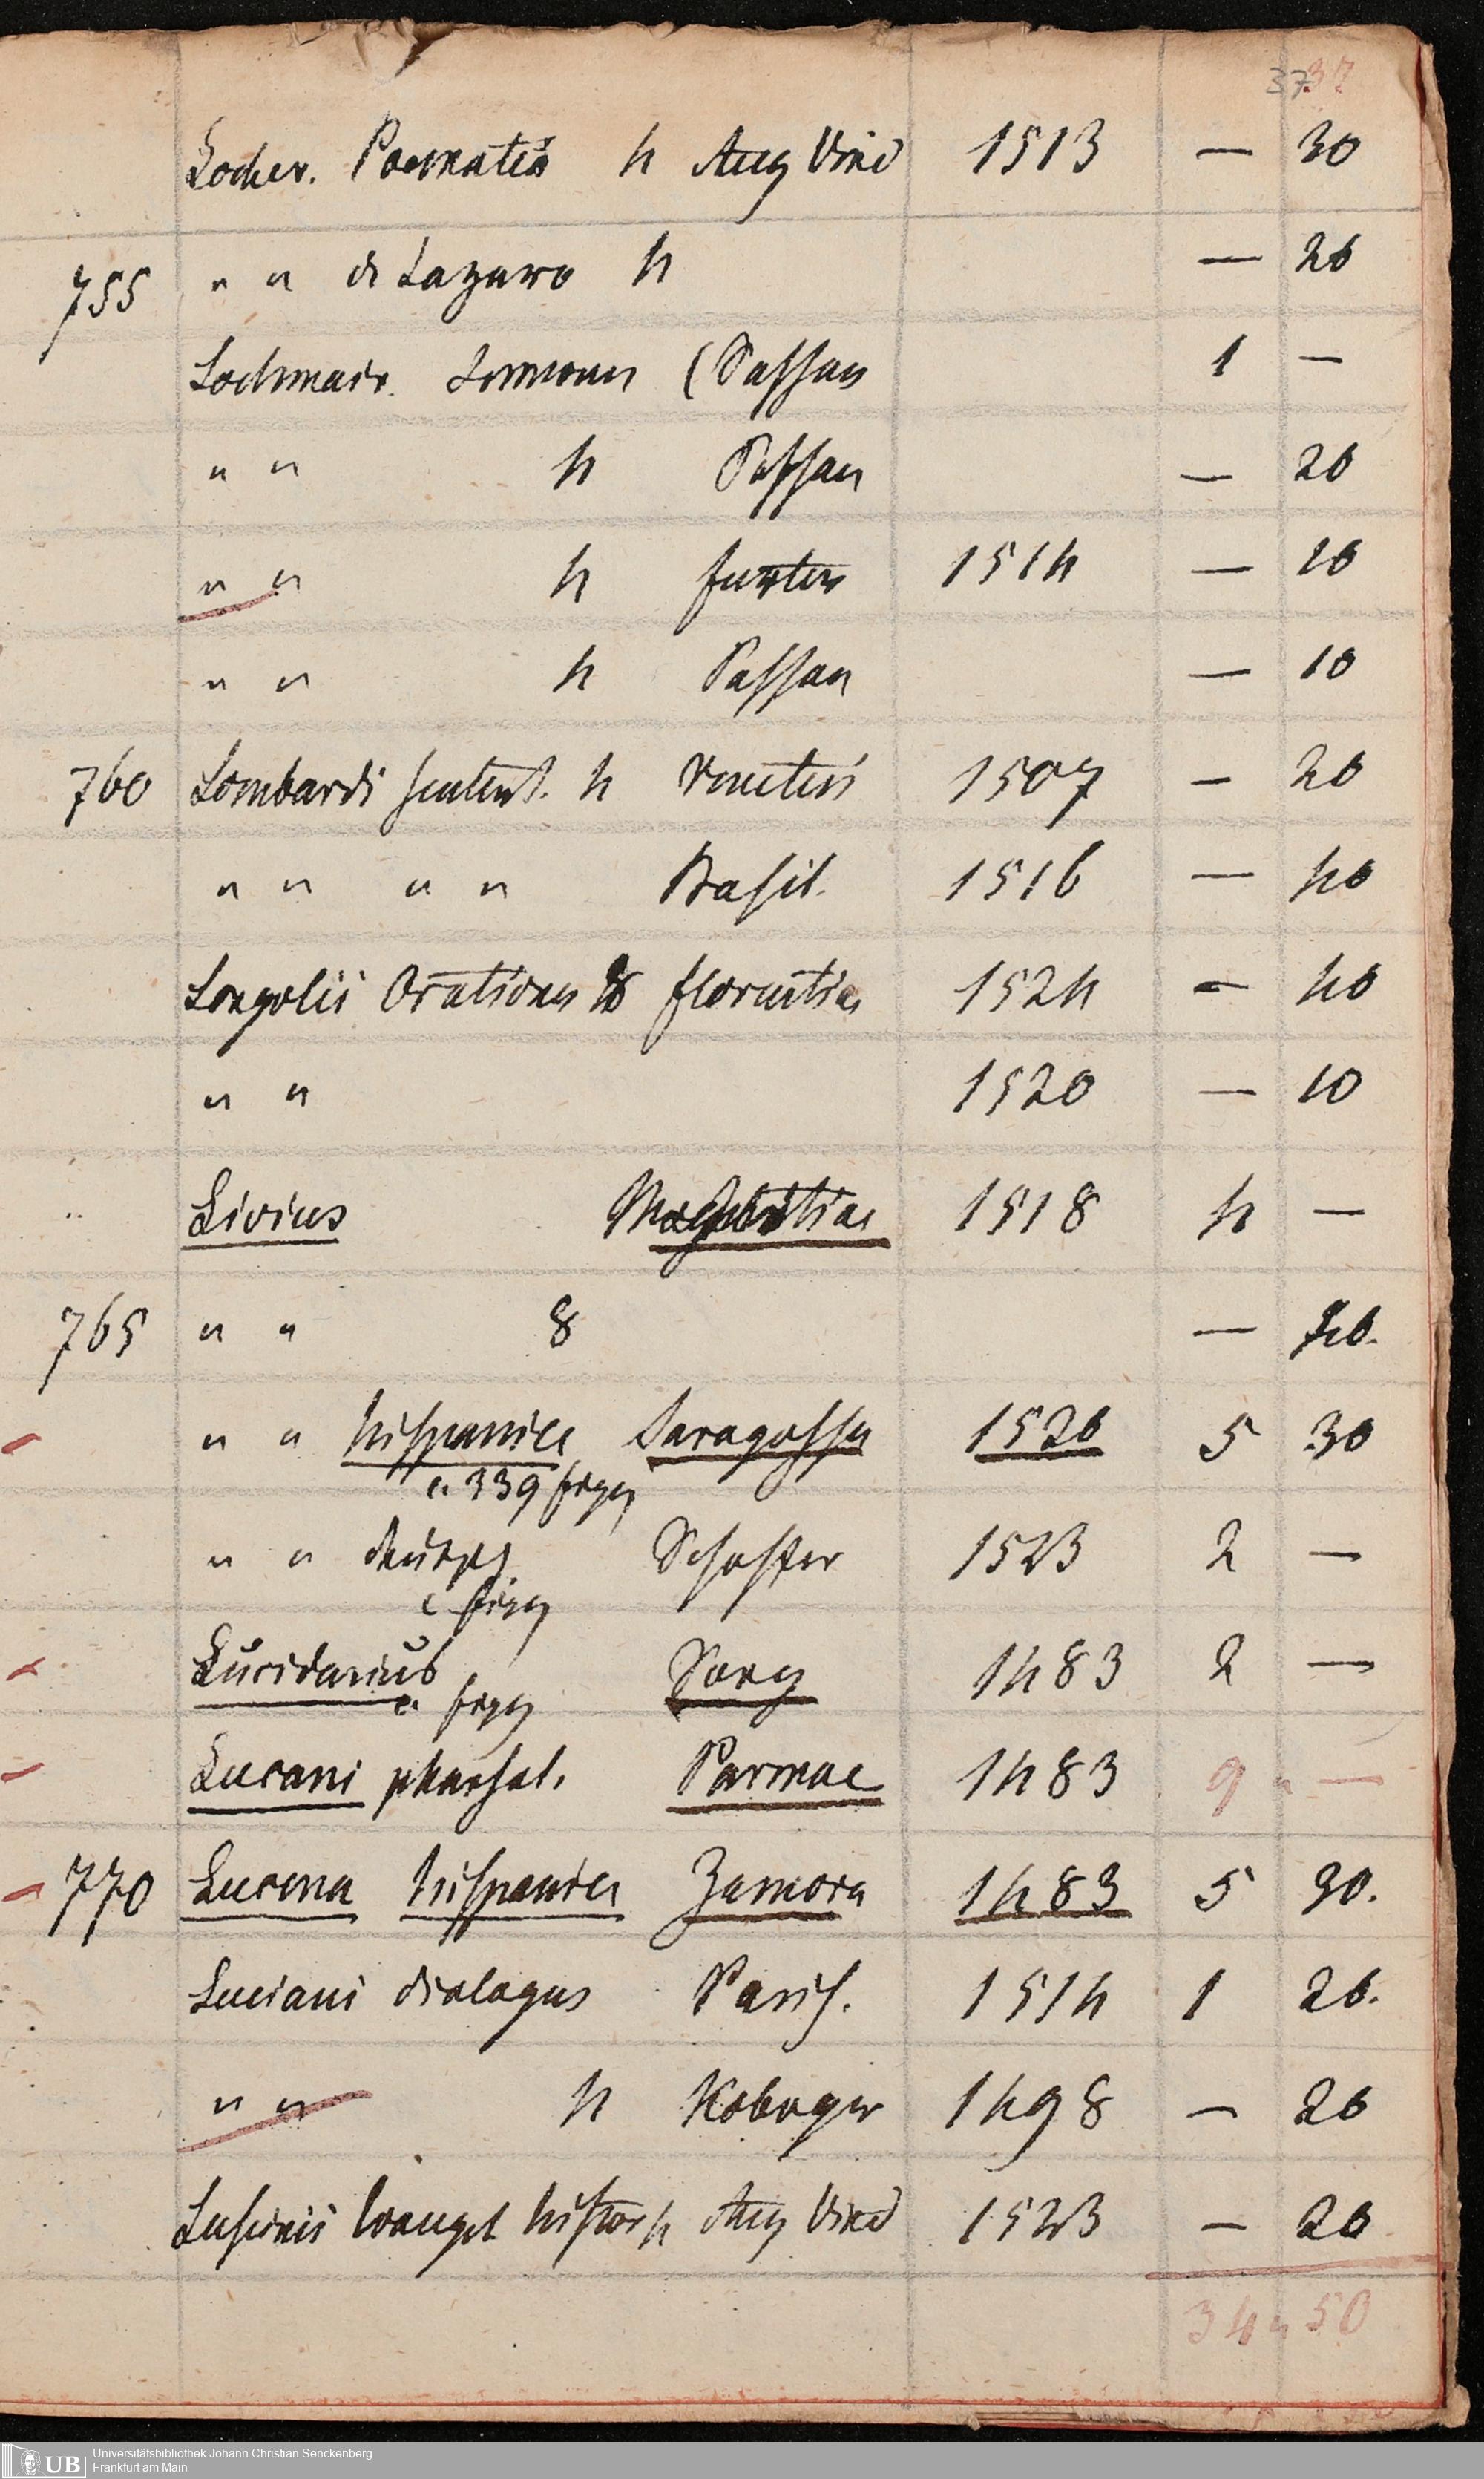 37 37
Locher. Poematia 4 Aug Vind 1513 — 30
755 " " de Lazaro 4 — 20
Lochmair. Sermones (Passau 1 —
" " 4 Passau — 20
" " 4 furter 1514 — 10
" " 4 Passau — 10
760 Lombardi sentent. 4 Venetiis 1507 — 20
" " " " Basil. 1516 — 40
Longolii Orationes florentiae 1524 — 40
" " 1520 — 10
Livius Moguntiae 1518 4 —
765 " " 8 —
" " hispanice Saragossa 1520 5 30
c. 339 figg
" " deutsch Schoffer 1523 2 —
c figg
Lucidarius Sorg 1483 2 —
c. figg
Lucani pharsal. Parmae 1483 9 " —
770 Lucena hispanice Zamora 1483 5 30.
Luciani dialogus Paris. 1514 1 20.
" " 4 Koberger 1498 — 20
Luscinii Evangel histor 4 Aug Vind 1523 — 20
34 " 50
UB Universitätsbibliothek Johann Christian Senckenberg
Frankfurt am Main